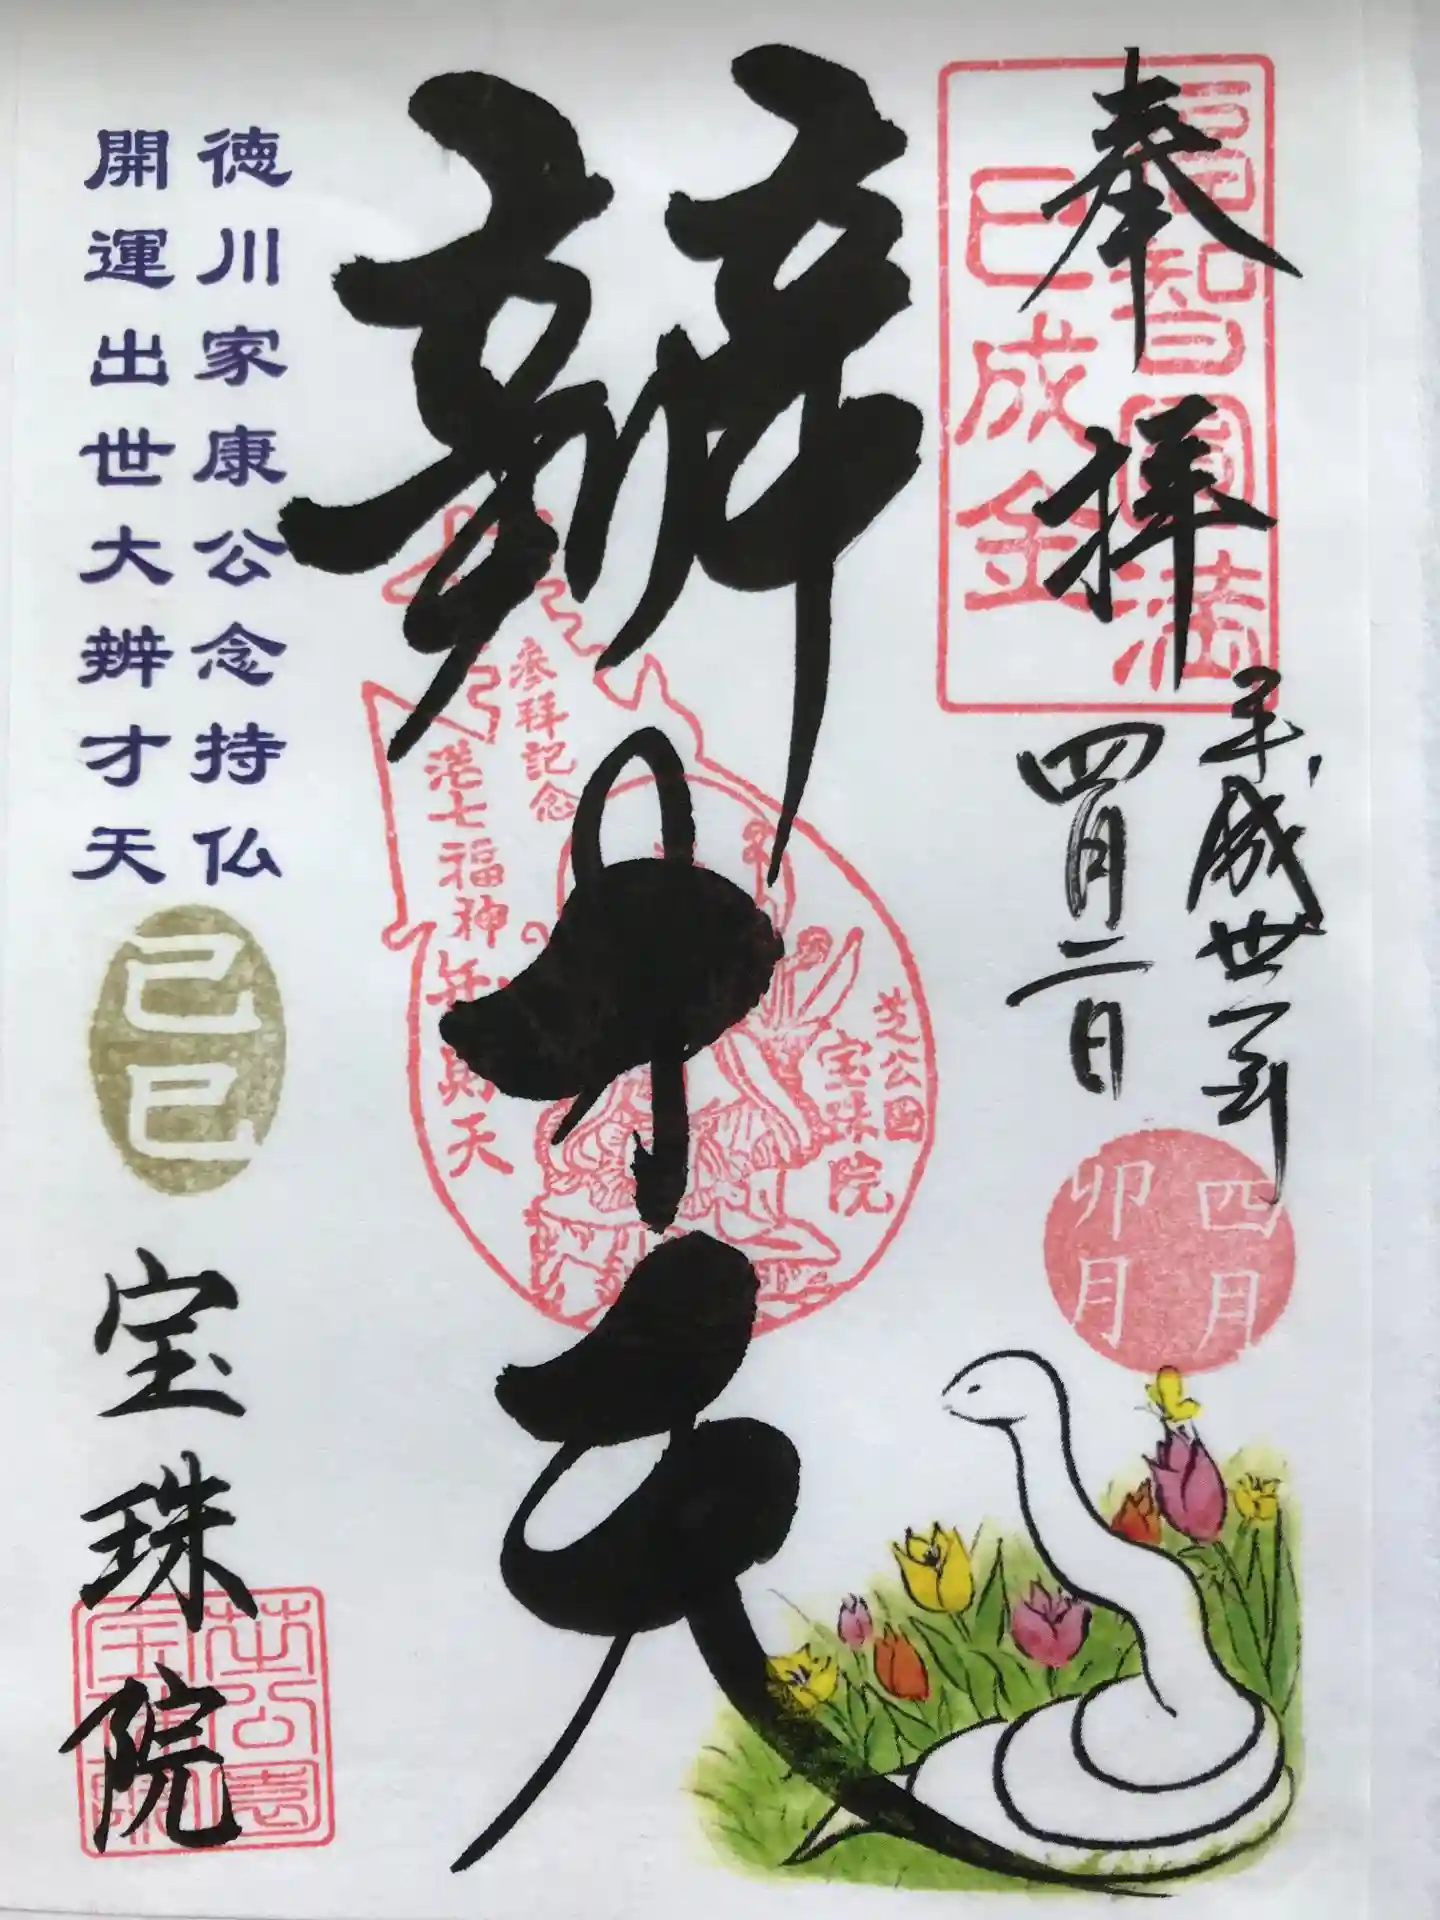 奉拝
福智圓満
巳成金
平成卅一年
四月二日
四月
卯月
辨才天
参拝記念
港七福神弁財天
芝公園
宝珠院
徳川家康公念持仏
開運出世大辨才天
己巳
宝珠院
芝公園
宝珠院